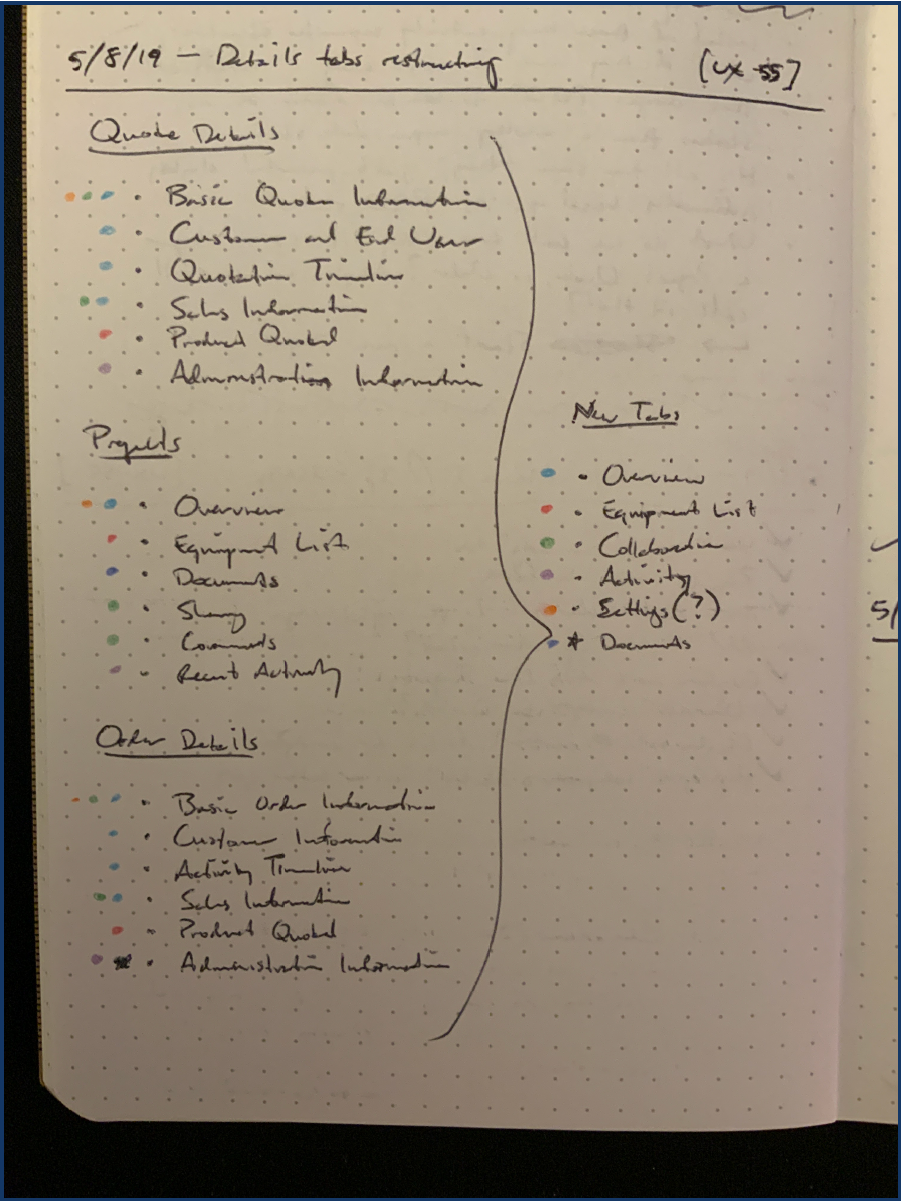 5/8/19 — Details tabs restructing [UX-55]
Quote Details
• Basic Quote Information
• Customer and End User
• Quotation Timeline
• Sales Information
• Product Quoted
• Administration Information
Projects
• Overview
• Equipment List
• Documents
• Sharing
• Comments
• Recent Activity
Order Details
• Basic Order Information
• Customer Information
• Activity Timeline
• Sales Information
• Product Quoted
• Administration Information
New Tabs
• Overview
• Equipment List
• Collaboration
• Activity
• Settings (?)
* Documents
5/